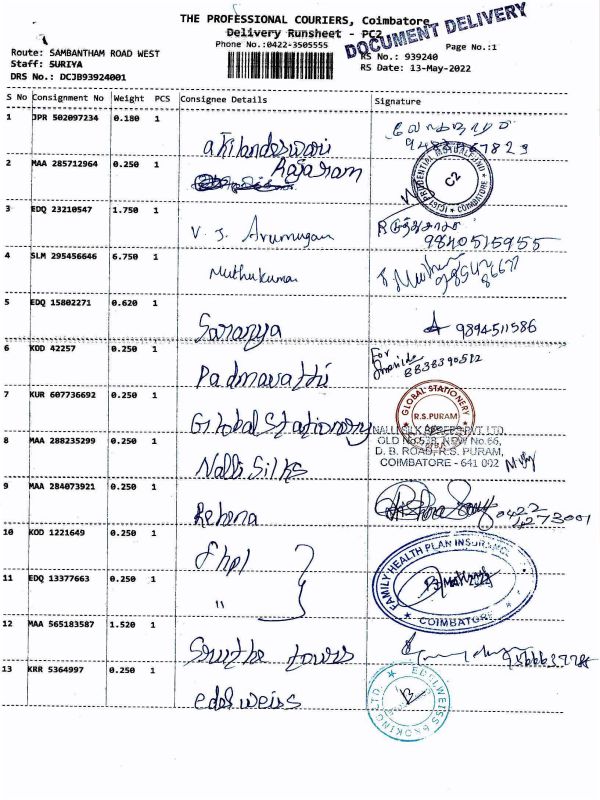 THE PROFESSIONAL COURIERS, Coimbatore
Delivery Runsheet - PC2
DOCUMENT DELIVERY
Phone No.:0422-3505555
Page No.:1
Route: SAMBANTHAM ROAD WEST
RS No.: 939240
Staff: SURIYA
RS Date: 13-May-2022
DRS No.: DCJB93924001
S No Consignment No Weight PCS Consignee Details Signature
1 JPR 502097234 0.180 1
akilandeswari
2 MAA 285712964 0.250 1 Rajaram
PRUDENTIAL
C2
COIMBATORE
3 EDQ 23210547 1.750 1
V. J. Arumugam 9840515955
4 SLM 295456646 6.750 1
Muthukumar
5 EDQ 15802271 0.620 1
Saranya 9894511586
6 KOD 42257 0.250 1 For
8838390512
Padmavathi
7 KUR 607736692 0.250 1
Global Stationery
GLOBAL STATIONERY
R.S.PURAM
8 MAA 288235299 0.250 1
Nalli Silks
OLD No.528, NEW No.66,
D. B. ROAD, R.S. PURAM,
COIMBATORE - 641 002
9 MAA 284073921 0.250 1
Rehana 0422
4273001
10 KOD 1221649 0.250 1
fhpl
11 EDQ 13377663 0.250 1
"
FAMILY HEALTH PLAN INSURANCE
COIMBATORE
12 MAA 565183587 1.520 1
Sruthe tours
13 KRR 5364997 0.250 1
edelweiss
EDELWEISS BROKING LTD.